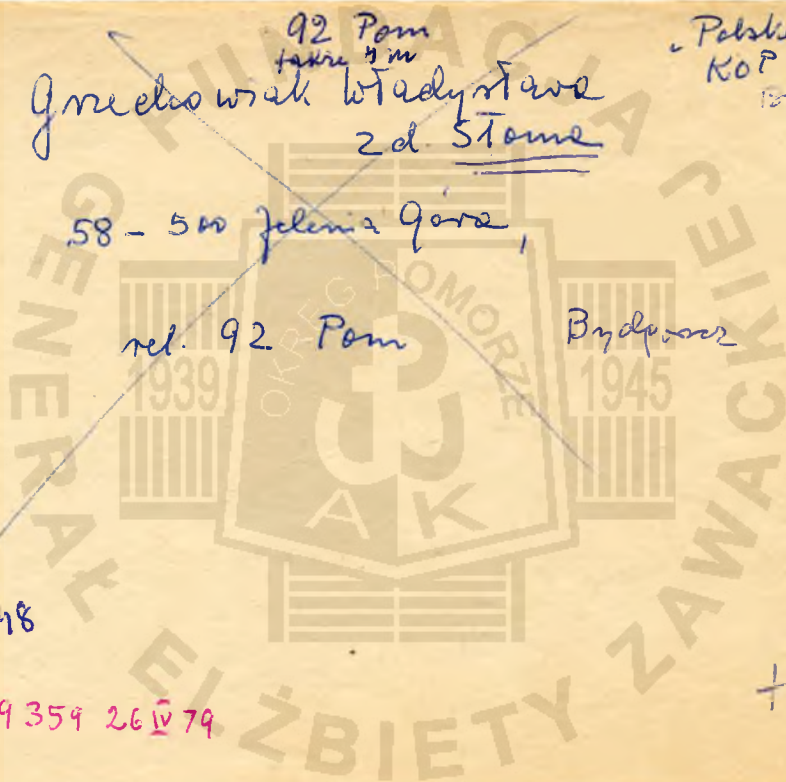 92 Pom
także
"Polsk
KOP
Grzechowiak Władysława
zd. Słoma
58-500 Jelenia Góra,
rel. 92 Pom Bydgoszcz
48
9359 26 IV 79
+
FUNDACJA GENERAŁ ELŻBIETY ZAWACKIEJ
OKRĘG POMORZE
1939 1945
AK